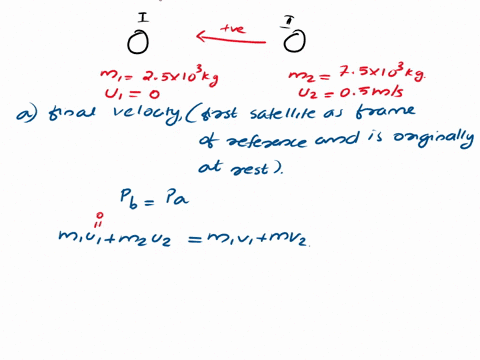 I
II
+ve
m₁ = 2.5×10³ kg
u₁ = 0
m₂ = 7.5×10³ kg.
u₂ = 0.5 m/s
a) final velocity, (first satellite as frame
of reference and is originally
at rest).
P_b = P_a
0
=
m₁u₁ + m₂u₂ = m₁v₁ + mv₂.